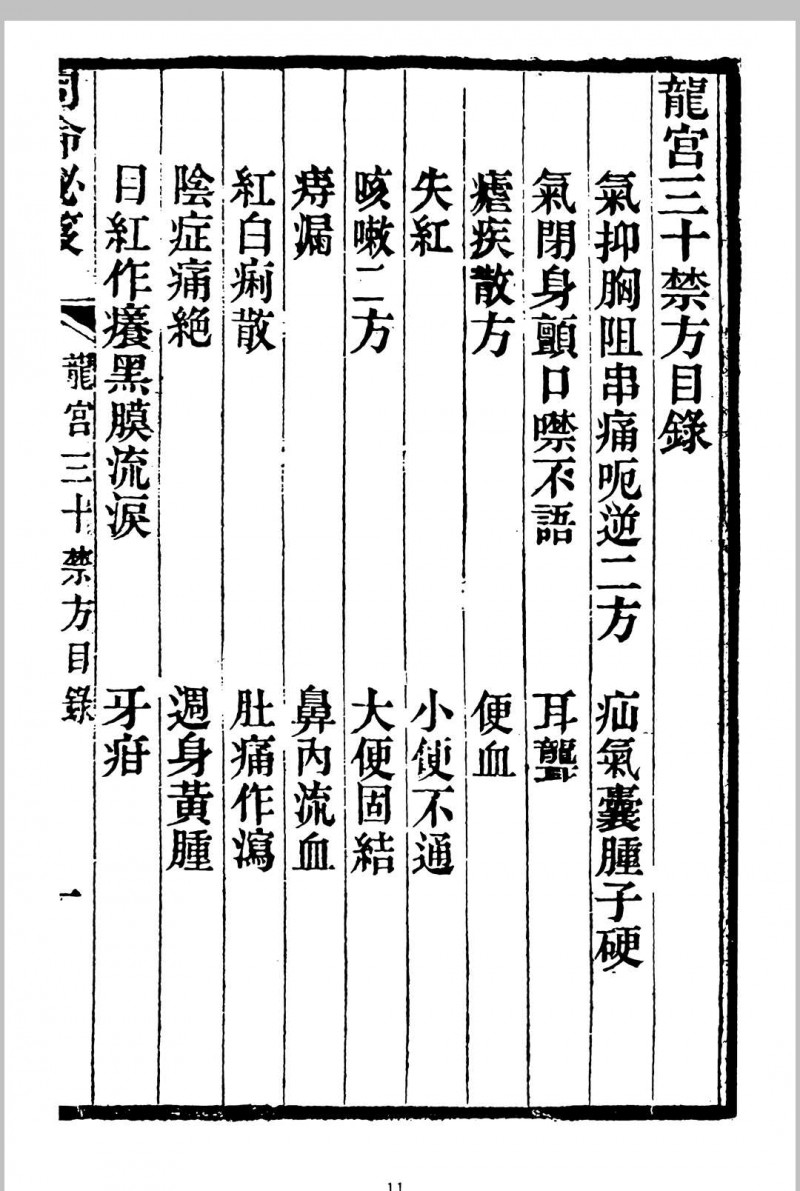 龍宮三十禁方目錄
氣抑胸阻串痛呃逆二方 疝氣囊腫子硬
氣閉身顫口噤不語 耳聾
瘧疾散方 便血
失紅 小便不通
咳嗽二方 大便固結
痔漏 鼻內流血
紅白痢散 肚痛作瀉
陰症痛絕 週身黃腫
目紅作癢黑膜流淚 牙疳
命秘笈 龍宮三十禁方目錄 一
11